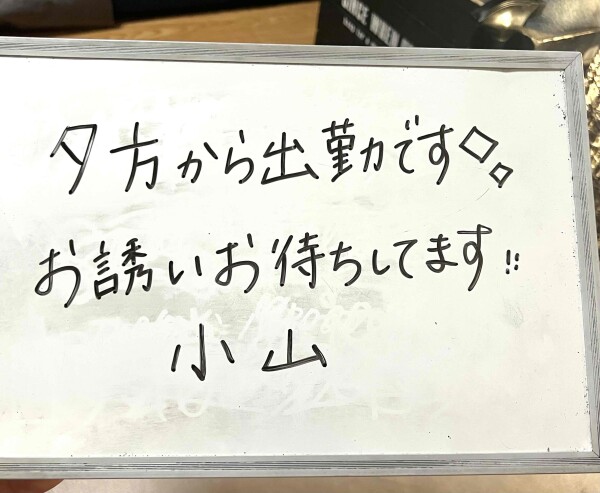 SINCE WHEN
夕方から出勤です◇◇
お誘いお待ちしてます!!
小山